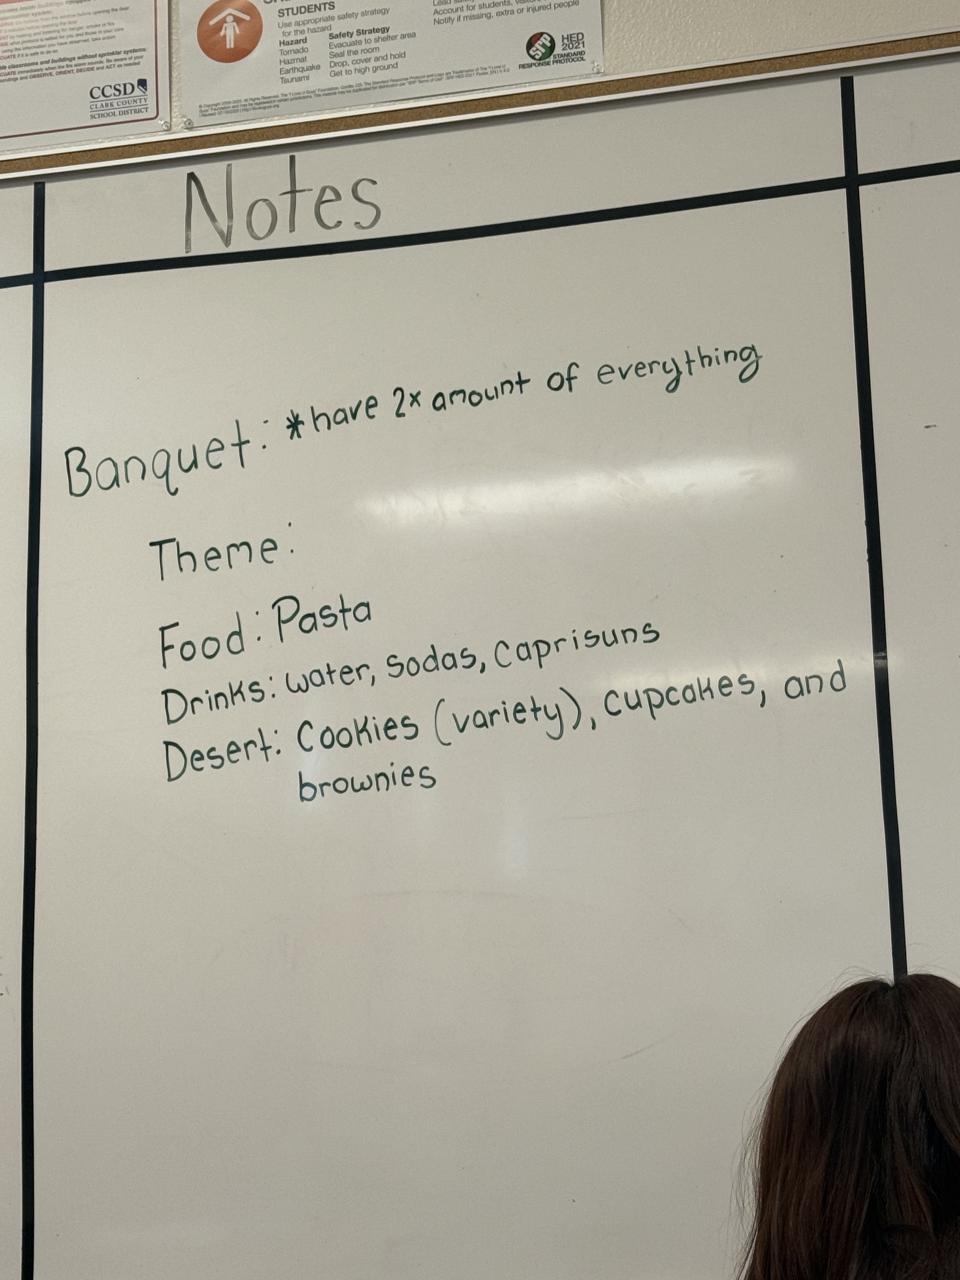 STUDENTS
Use appropriate safety strategy
for the hazard
Hazard Safety Strategy
Tornado Evacuate to shelter area
Hazmat Seal the room
Earthquake Drop, cover and hold
Tsunami Get to high ground
Account for students,
Notify if missing, extra or injured people
SRP
HED
2021
STANDARD
RESPONSE PROTOCOL
CCSD
CLARK COUNTY
SCHOOL DISTRICT
Notes
Banquet: *have 2x amount of everything
Theme:
Food: Pasta
Drinks: water, sodas, Caprisuns
Desert: Cookies (variety), cupcakes, and
brownies